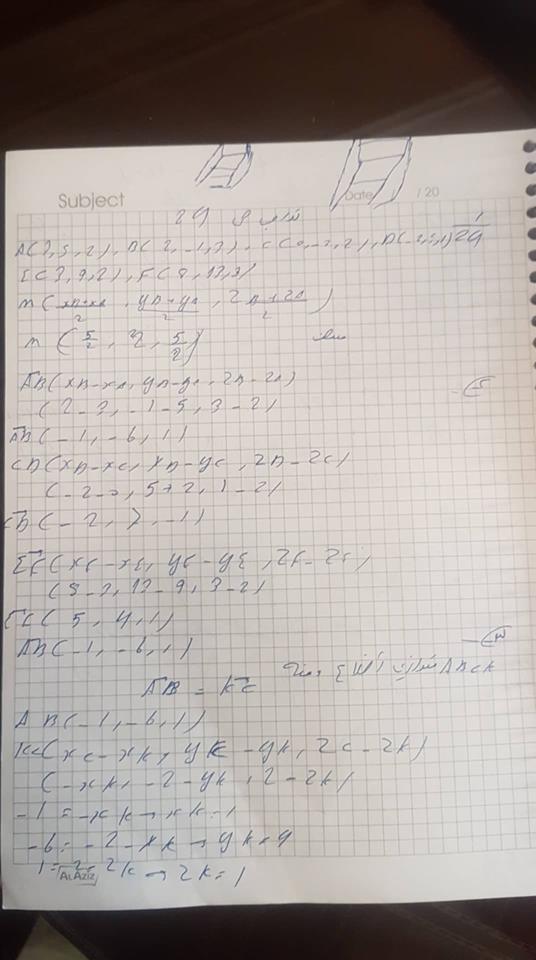 Subject
Date / 20
29
A(3,5,2), B(2,-1,3), C(0,-2,2), D(-2,5,1)
E(3,9,2), F(8,13,3)
M(xB+xA/2, yB+yA/2, zB+zA/2)
M(5/2, 2, 5/2)
AB(xB-xA, yB-yA, zB-zA)
(2-3, -1-5, 3-2)
AB(-1, -6, 1)
CD(xD-xC, yD-yC, zD-zC)
(-2-0, 5+2, 1-2)
CD(-2, 7, -1)
EF(xF-xE, yF-yE, zF-zE)
(8-3, 13-9, 3-2)
EF(5, 4, 1)
AB(-1, -6, 1)
ABCK متوازي أضلاع ومنه
AB = KC
AB(-1, -6, 1)
KC(xC-xK, yC-yK, zC-zK)
(-xK, -2-yK, 2-zK)
-1 = -xK → xK=1
-6=-2-yK → yK=4
1=2-zK → zK=1
ALAZIZ